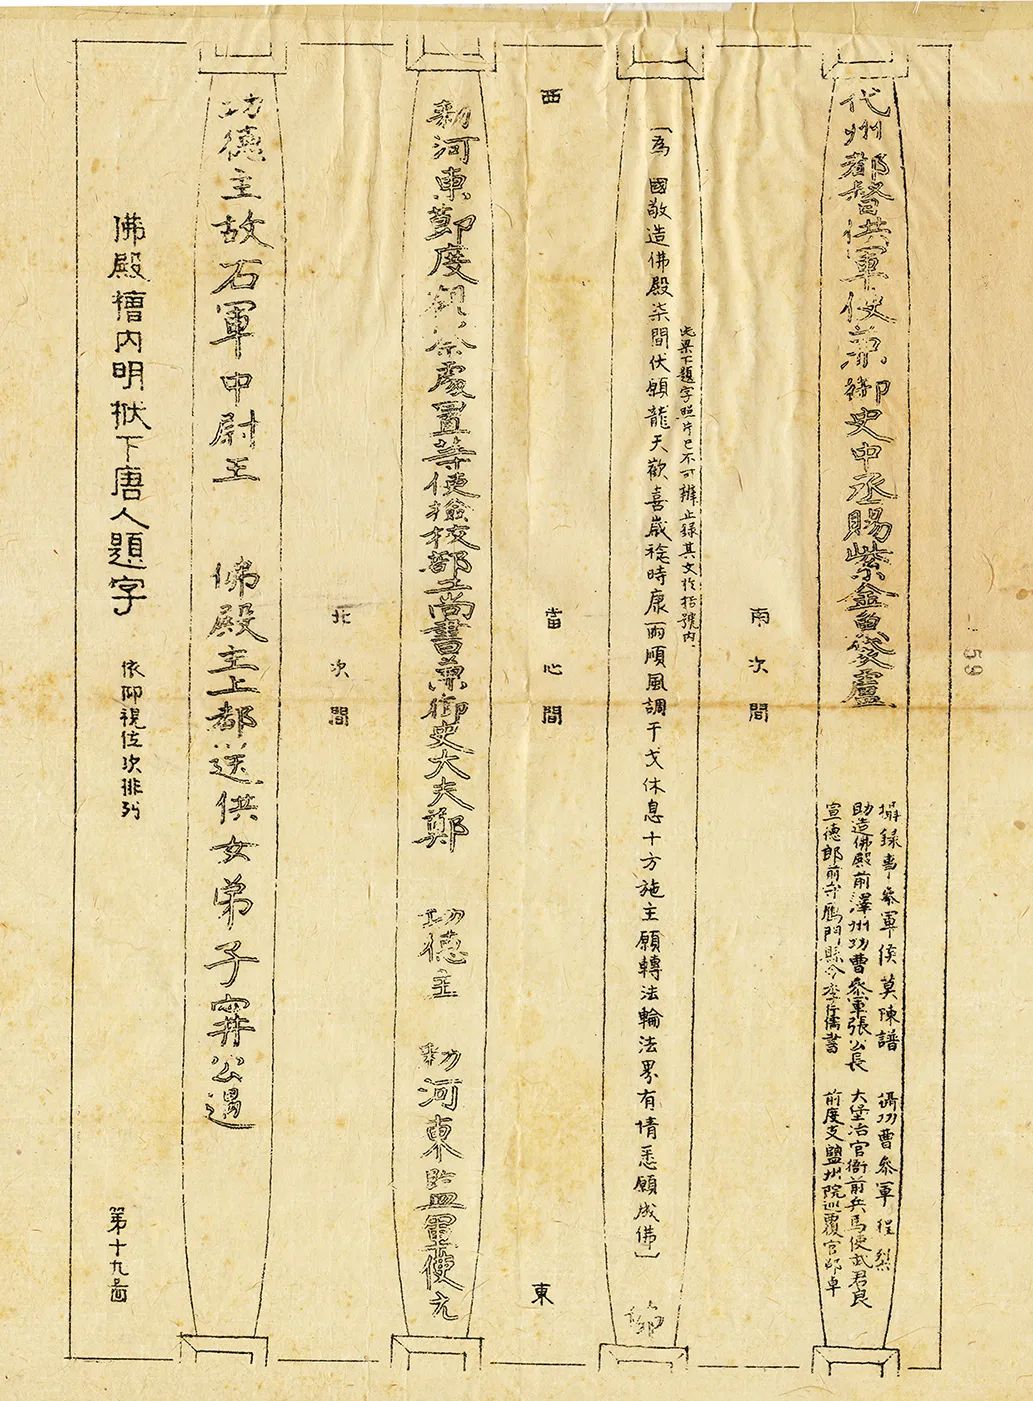 代州都督供軍使兼御史中丞賜紫金魚袋盧
攝錄事參軍侯莫陳譜
助造佛殿前澤州功曹參軍張公長
宣德郎前守鴈門縣令李行儒書
攝功曹參軍程
大堡冶官衙前兵馬使武君良
前度支鹽州院巡覆官邵卓
59
南次間
此梁下題字照片已不可辨止錄其文於括號內
〔為 國敬造佛殿柒間伏願龍天歡喜歲稔時康雨順風調干戈休息十方施主願轉法輪法界有情悉願成佛〕
西
當心間
東
勅河東節度觀察處置等使檢校部工尚書兼御史大夫鄭
功德主 勅河東監軍使元
北次間
功德主故右軍中尉王 佛殿主上都送供女弟子甯公遇
佛殿槽內明栿下唐人題字 依仰視位次排列
第十九啚